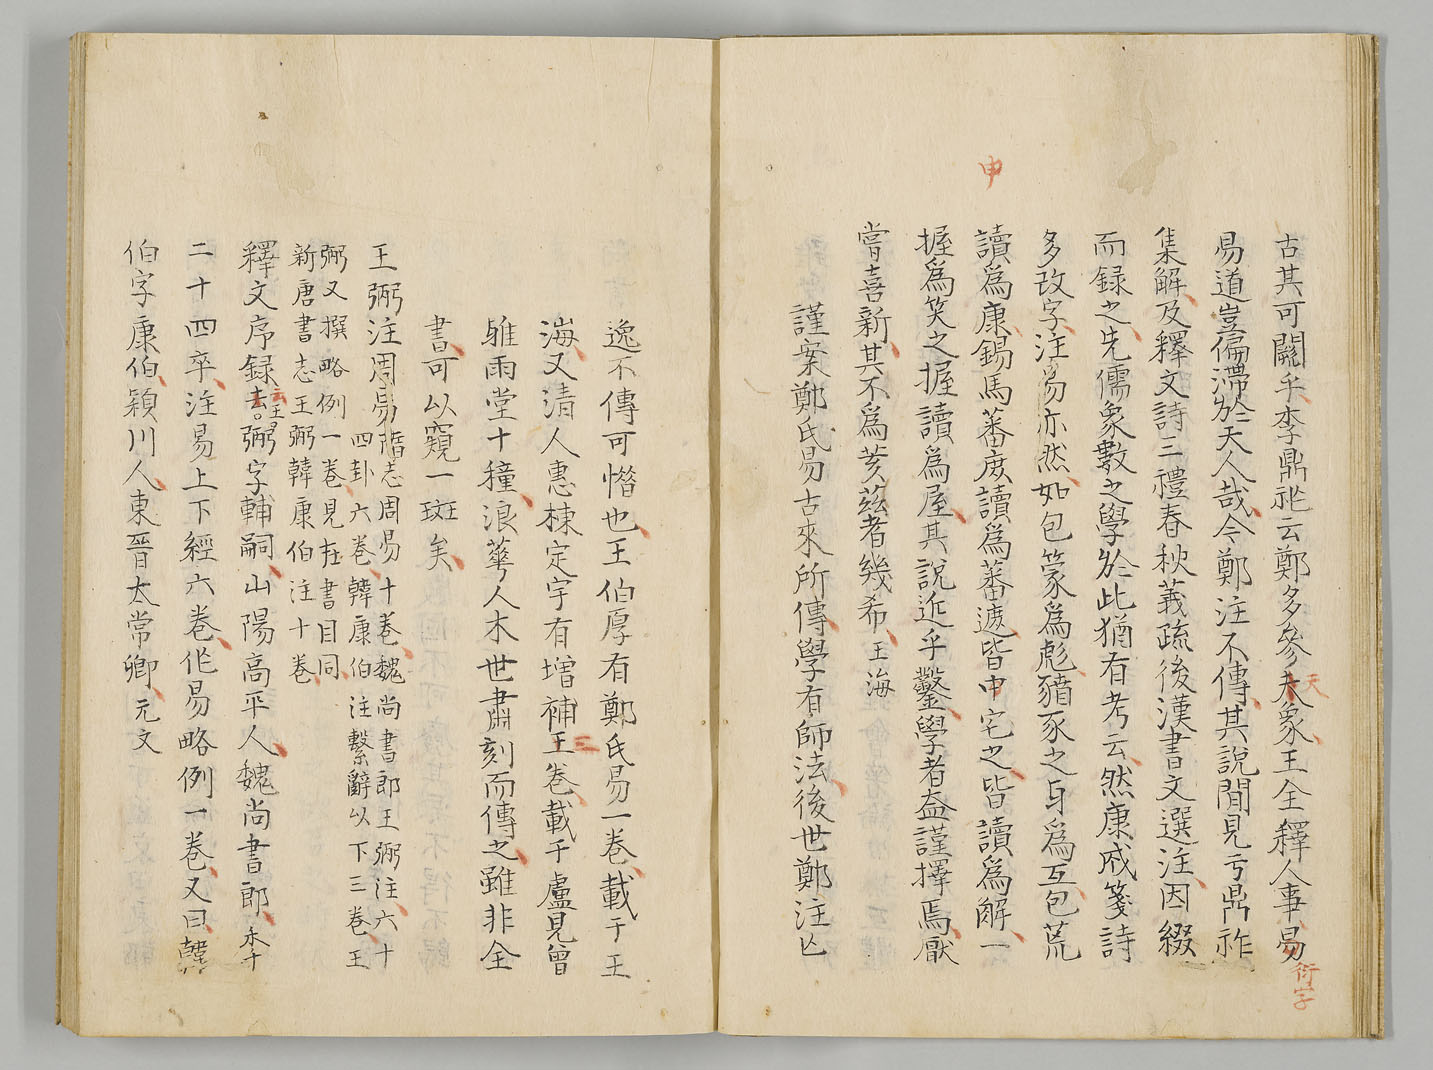 申
古其可闕乎李鼎祚云鄭多參夫象王全釋人事易
天
衍字
易道豈偏滯於天人哉今鄭注不傳其說間見亐鼎祚
集解及釋文詩三禮春秋義疏後漢書文選注因綴
而録之先儒象數之學於此猶有考云然康成箋詩
多改字注易亦然如包䝉爲彪豶豕之牙爲互包荒
讀爲康錫馬蕃庶讀爲蕃遮皆甲宅之皆讀爲解一
握爲笑之握讀爲屋其說近乎鑿學者盍謹擇焉厭
嘗喜新其不爲芟茲者幾希王海
謹案鄭氏易古來所傳學有師法後世鄭注亡
逸不傳可惜也王伯厚有鄭氏易一卷載于王
海又清人惠棟定宇有增補王卷載于盧見曾
三
雅雨堂十種浪華人木世肅刻而傳之雖非全
書可以窺一斑矣
王弼注周易隋志周易十卷魏尚書郎王弼注六十
四卦六卷韓康伯注繫辭以下三卷王
弼又撰略例一卷見在書目同
新唐書志王弼韓康伯注十卷
釋文序録去弼字輔嗣山陽高平人魏尚書郎年
云王
二十四卒注易上下經六卷作易略例一卷又曰韓
伯字康伯穎川人東晉太常卿元文